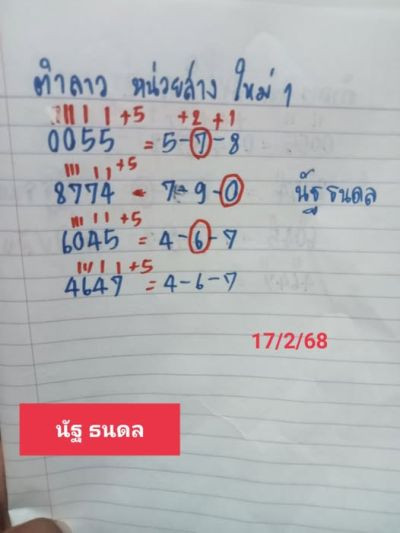 ตำลาว หน่วยล่าง ใหม่ๆ
+5 +2 +1
0055 = 5-7-8
+5
8774 = 7-9-0 นัฐ ธนดล
+5
6045 = 4-6-7
+5
4647 = 4-6-7
17/2/68
นัฐ ธนดล